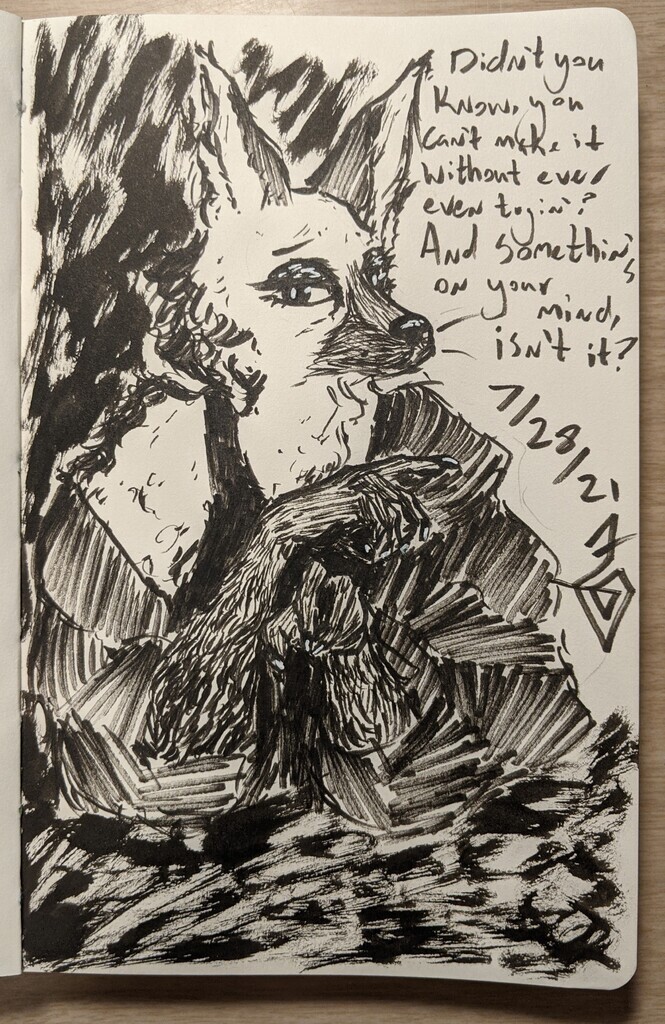 Didn't you
Know, you
can't make it
without ever
even tryin'?
And somethin's
on your
mind,
isn't it?
7/28/21